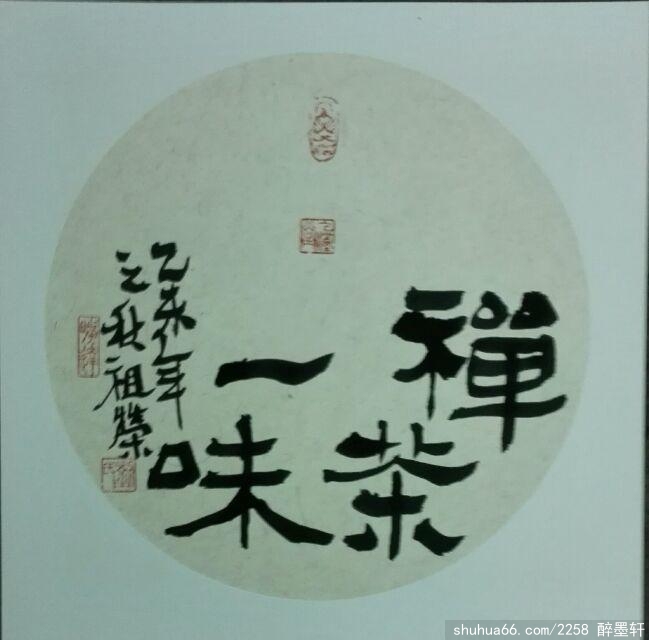 禪茶
一味
乙未年
之秋祖榮
shuhua66.com/2258 醉墨轩